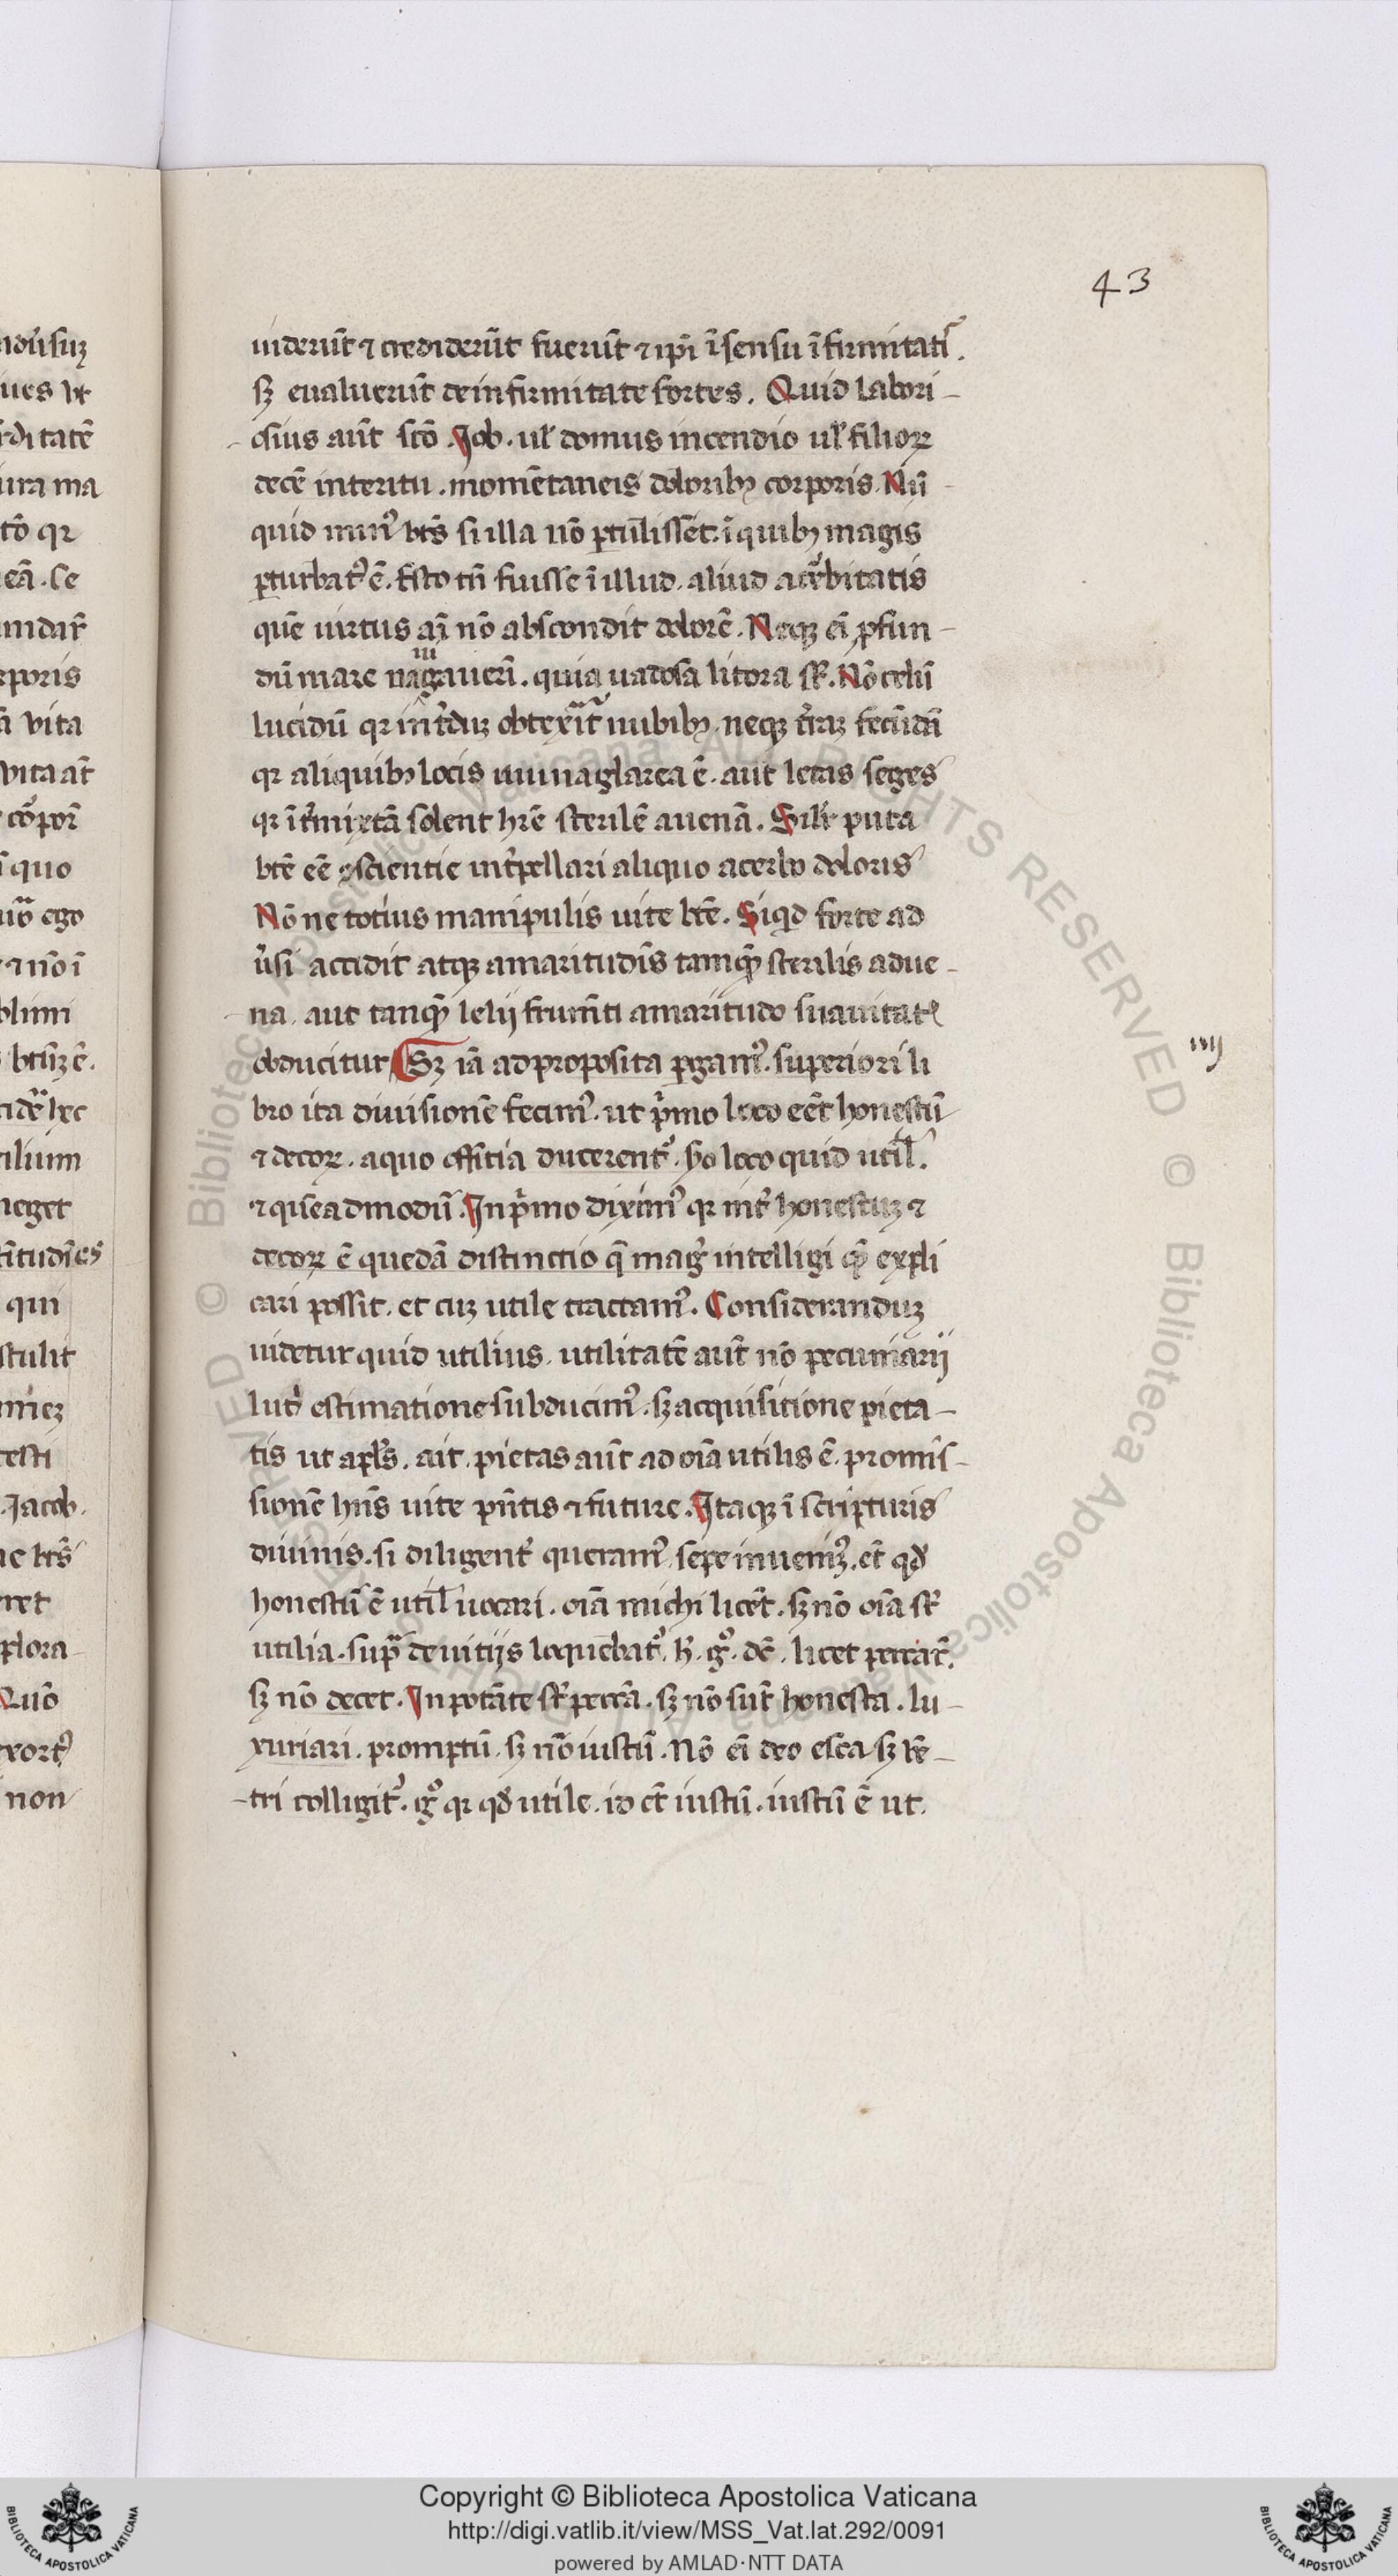 43
uiderūt ⁊ crediderūt fuerūt ⁊ ipi ī sensu īfirmitatꝭ.
sꝫ eualuerūt de infirmitate fortes. Quid labori-
osius aūt scō Iob. ul' domus incendio ul' filioꝝ
decē interitu. momētaneis doloribꝫ corporis. Nū
quid minꝰ btūs si illa nō ꝑtulissēt. ī quibꝫ magis
ꝑturbatꝰ ē. Esto tn̄ fuisse ī illud. aliud acerbitatis
quē uirtus ai nō abscondit dolorē. Neqꝫ ei ꝓfun-
dū mare nauigauerī. quia uadosa litora st̄. Nō celū
lucidū qꝛ int̓duꝫ obtexit̄ nubibꝫ. neqꝫ t̓raꝫ fecūdā
qꝛ aliquibꝫ locis ieiuna glarea ē. aut letas seges
qꝛ īt̓mixtā solent hr̄e sterilē auenā. Sil'r puta
btē eē ꝯscientie int̓pellari aliquo acerbo doloris
Nōne totius manipulis uite btē. Siqd forte ad
ūsi accidit atqꝫ amaritudīs tamqꝫ sterilis adue-
na. aut tanqꝫ lelij frum̄ti amaritudo suauitatꝭ
obducitur Sꝫ iā ad proposita ꝑgamꝰ. superiori li
iiij
bro ita diuisionē fecimꝰ. ut pⁱmo loco eēt honestū
⁊ decoꝝ. a quo offitia ducerent᷑. ẜo loco quid util'.
⁊ quēadmodū. In pⁱmo diximꝰ qꝛ int̓ honestuꝫ ⁊
decoꝝ ē quedā distinctio q̄ mag̓ intelligi qꝫ expli
cari possit. et cuꝫ utile tractamꝰ. Consideranduꝫ
uidetur quid utilius. utilitatē aūt nō pecuniarij
luc̓ estimatione subducimꝰ. sꝫ acquisitione pieta-
tis ut apl's. ait. pietas aūt ad oīa utilis ē. promis-
sionē hn̄s uite pn̄tis ⁊ future. Itaqꝫ ī scripturis
diuinis. si diligent̓ queramꝰ sepe inuenimꝰ. et̄ qđ
honestū ē util' uocari. oīa michi licēt. sꝫ nō oīa st̄
utilia. supᵃ de uitijs loquebat᷑. ħ. gͦ. dc̄. licet peccar̄.
sꝫ nō decet. In ptāte st̄ peccā. sꝫ nō sūt honesta. lu-
xuriari. promptū. sꝫ nō iustū. Nō ei deo esca sꝫ uē-
tri colligit᷑. gͦ qꝛ qđ utile. id et̄ iustū. iustū ē ut.
Copyright © Biblioteca Apostolica Vaticana
http://digi.vatlib.it/view/MSS_Vat.lat.292/0091
powered by AMLAD·NTT DATA